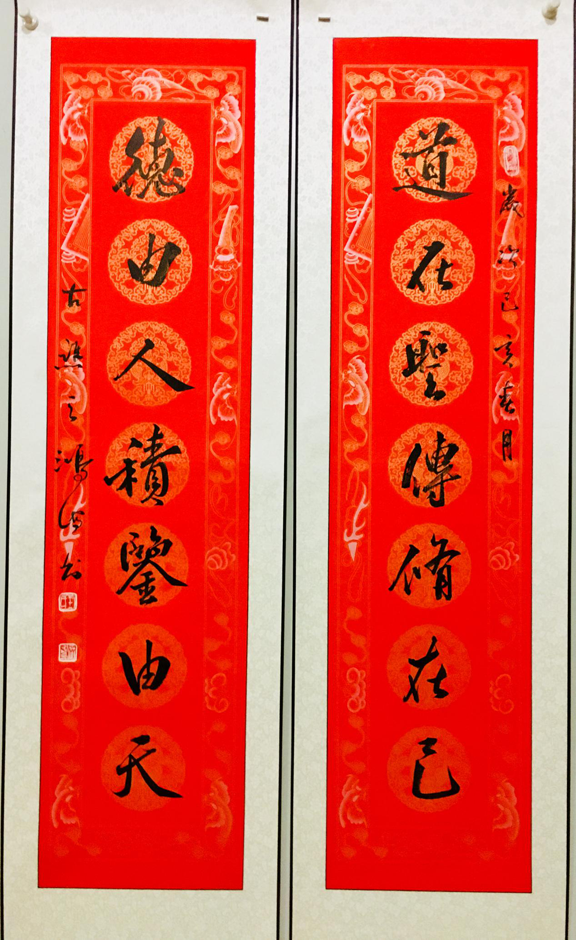 歲次己亥春月
道在聖傳脩在己
德由人積鑒由天
古之鴻书